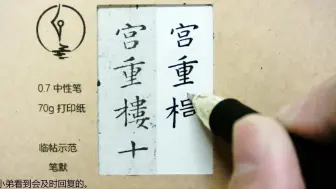 0.7 中性笔
70g 打印纸
临帖示范
笔默
小弟看到会及时回复的。
宫重樓十
宫重